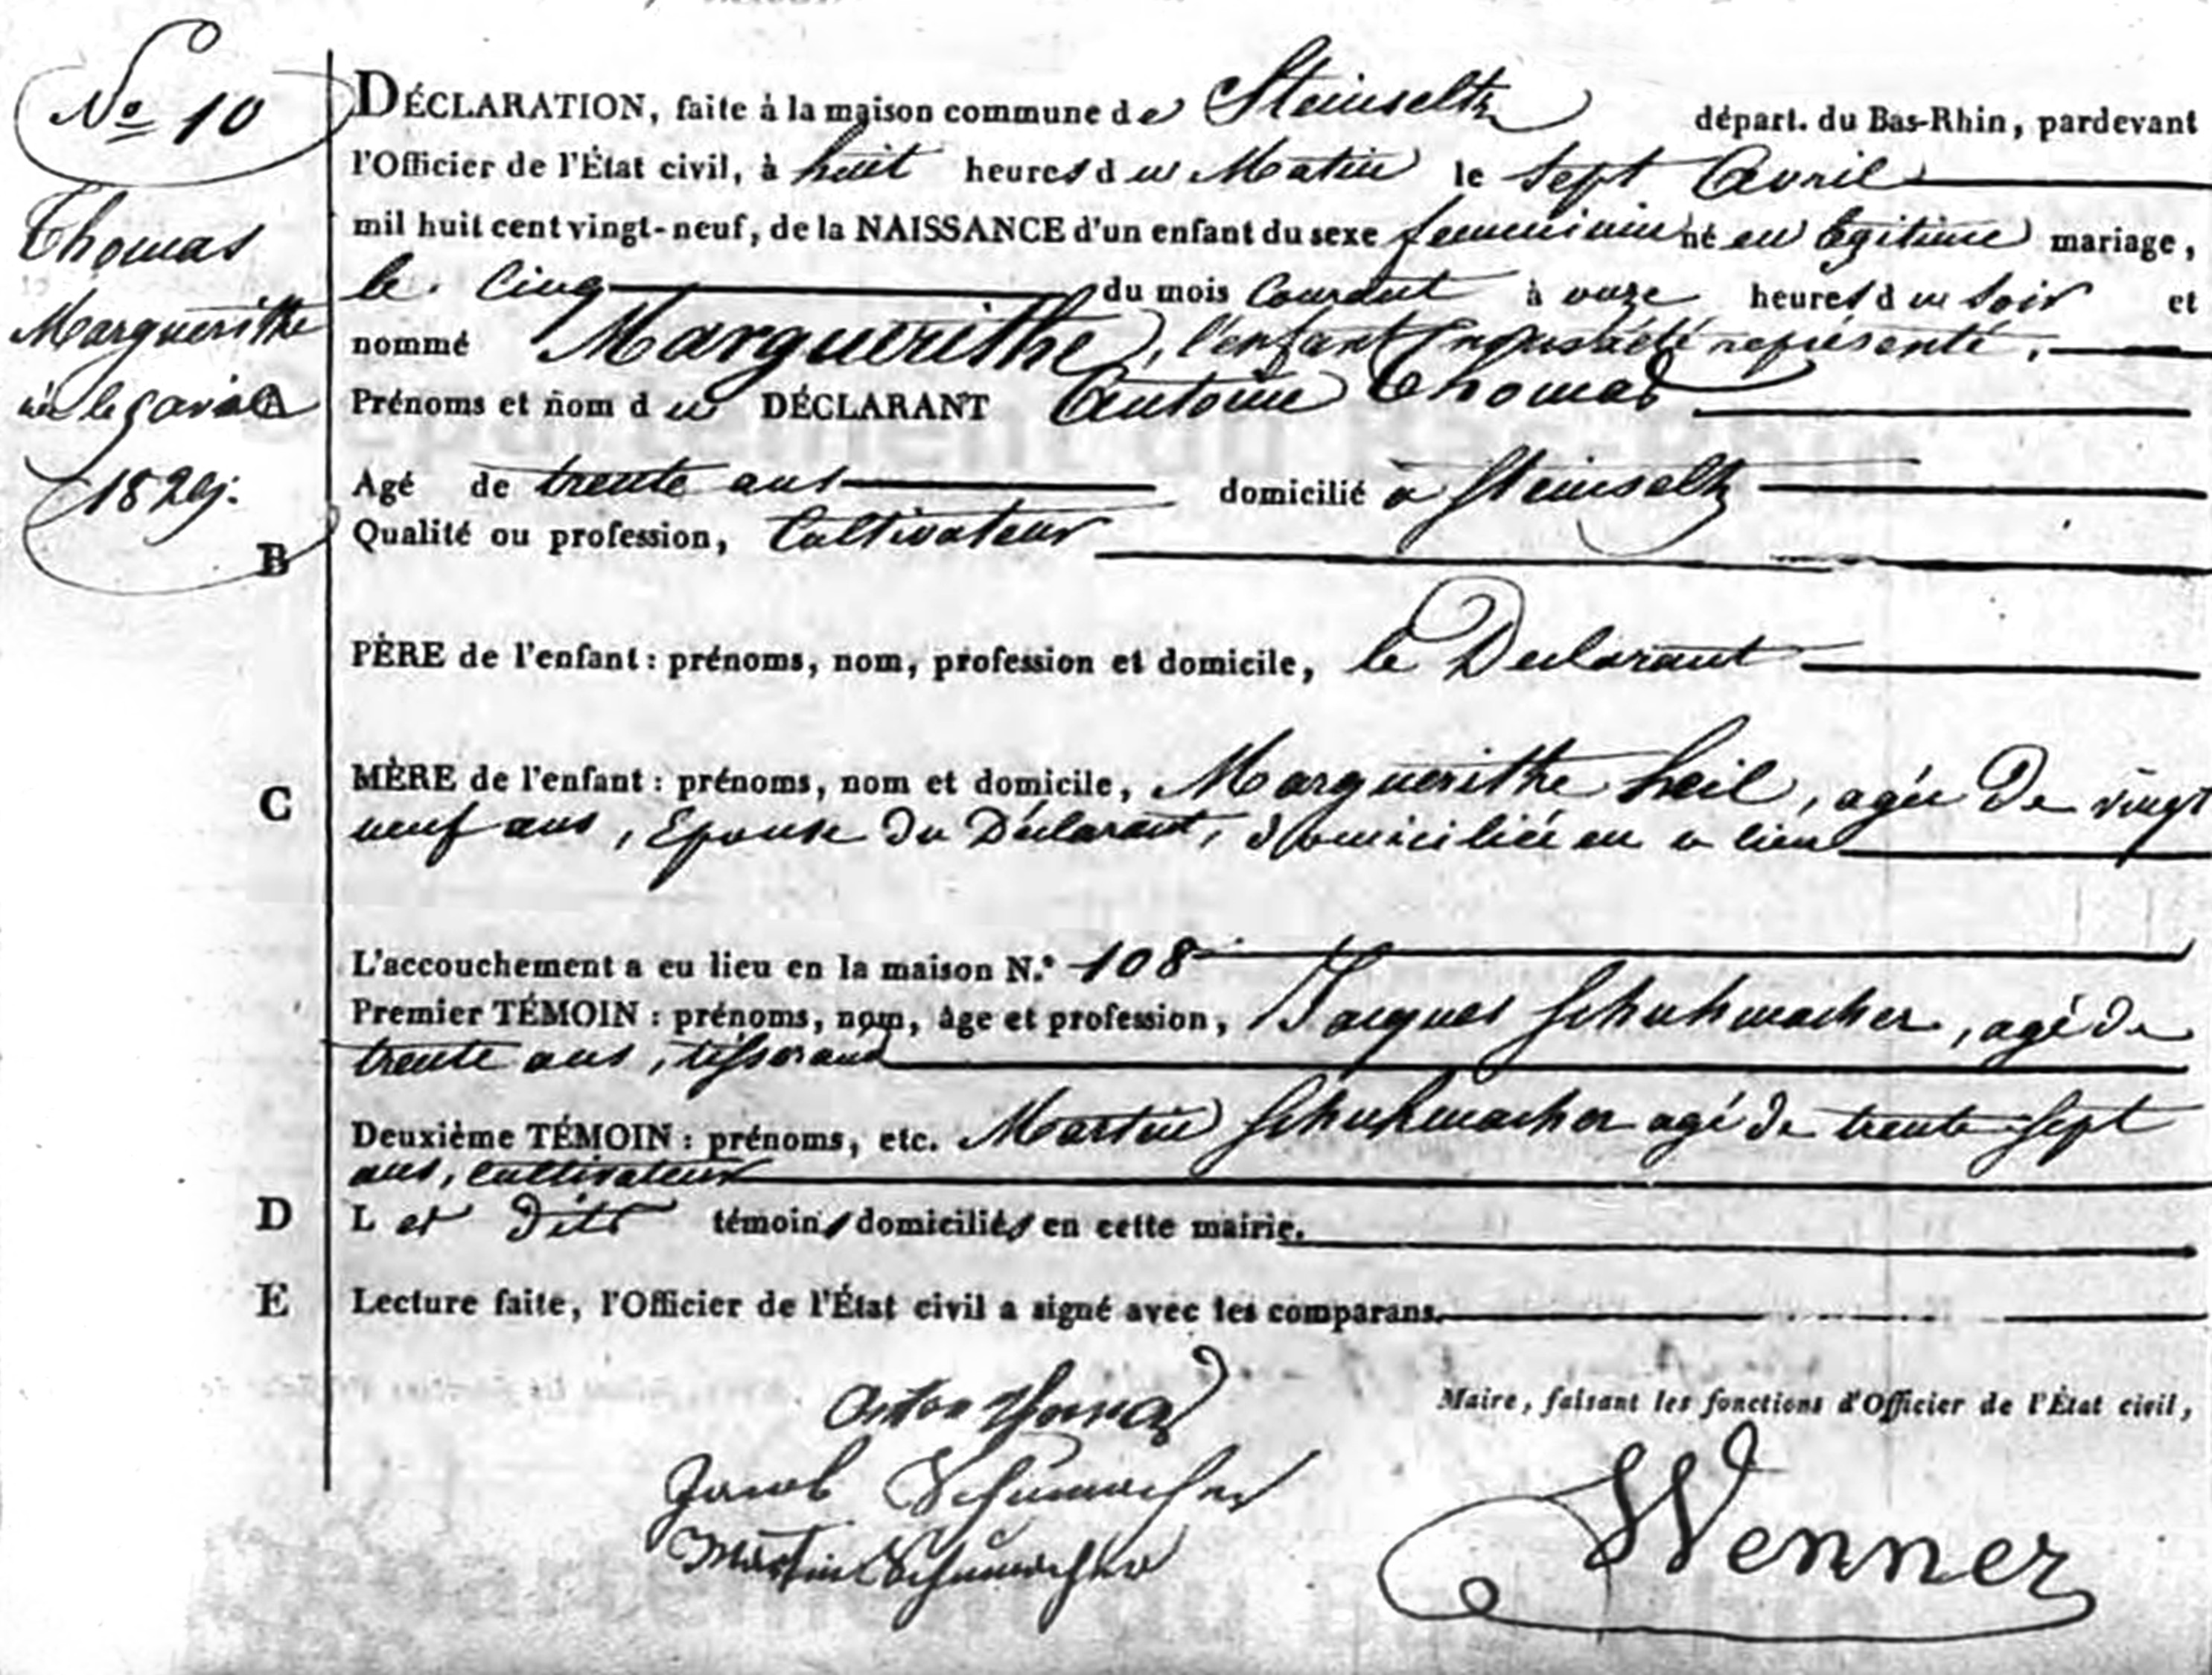 No 10
Thomas
Marguerithe
née le 5 avril
1829.
DÉCLARATION, faite à la maison commune de Steinseltz départ. du Bas-Rhin, pardevant
l'Officier de l'État civil, à huit heures du Matin le Sept Avril
mil huit cent vingt-neuf, de la NAISSANCE d'un enfant du sexe femminin né en légitime mariage,
le cinq du mois Courant à onze heures du Soir et
nommé Marguerithe, l'enfant Nous a été représenté,
Prénoms et nom du DÉCLARANT Antoine Thomas
Agé de trente ans domicilié à Steinseltz
B
Qualité ou profession, Cultivateur
PÈRE de l'enfant : prénoms, nom, profession et domicile, le Declarant
C
MÈRE de l'enfant : prénoms, nom et domicile, Marguerithe heil, agée de vingt
neuf ans, Epouse du Déclarant, domiciliée en ce lieu
L'accouchement a eu lieu en la maison N.º 108
Premier TÉMOIN : prénoms, nom, âge et profession, Jacques Schuhmacher, agé de
trente ans, tisserand
Deuxième TÉMOIN : prénoms, etc. Martin Schuhmacher agé de trente Sept
ans, cultivateur
D
Les dits témoins domiciliés en cette mairie.
E
Lecture faite, l'Officier de l'État civil a signé avec les comparans.
Anton Thomas
Maire, faisant les fonctions d'Officier de l'État civil,
Jacob Schumacher
Martin Schumacher
Wenner